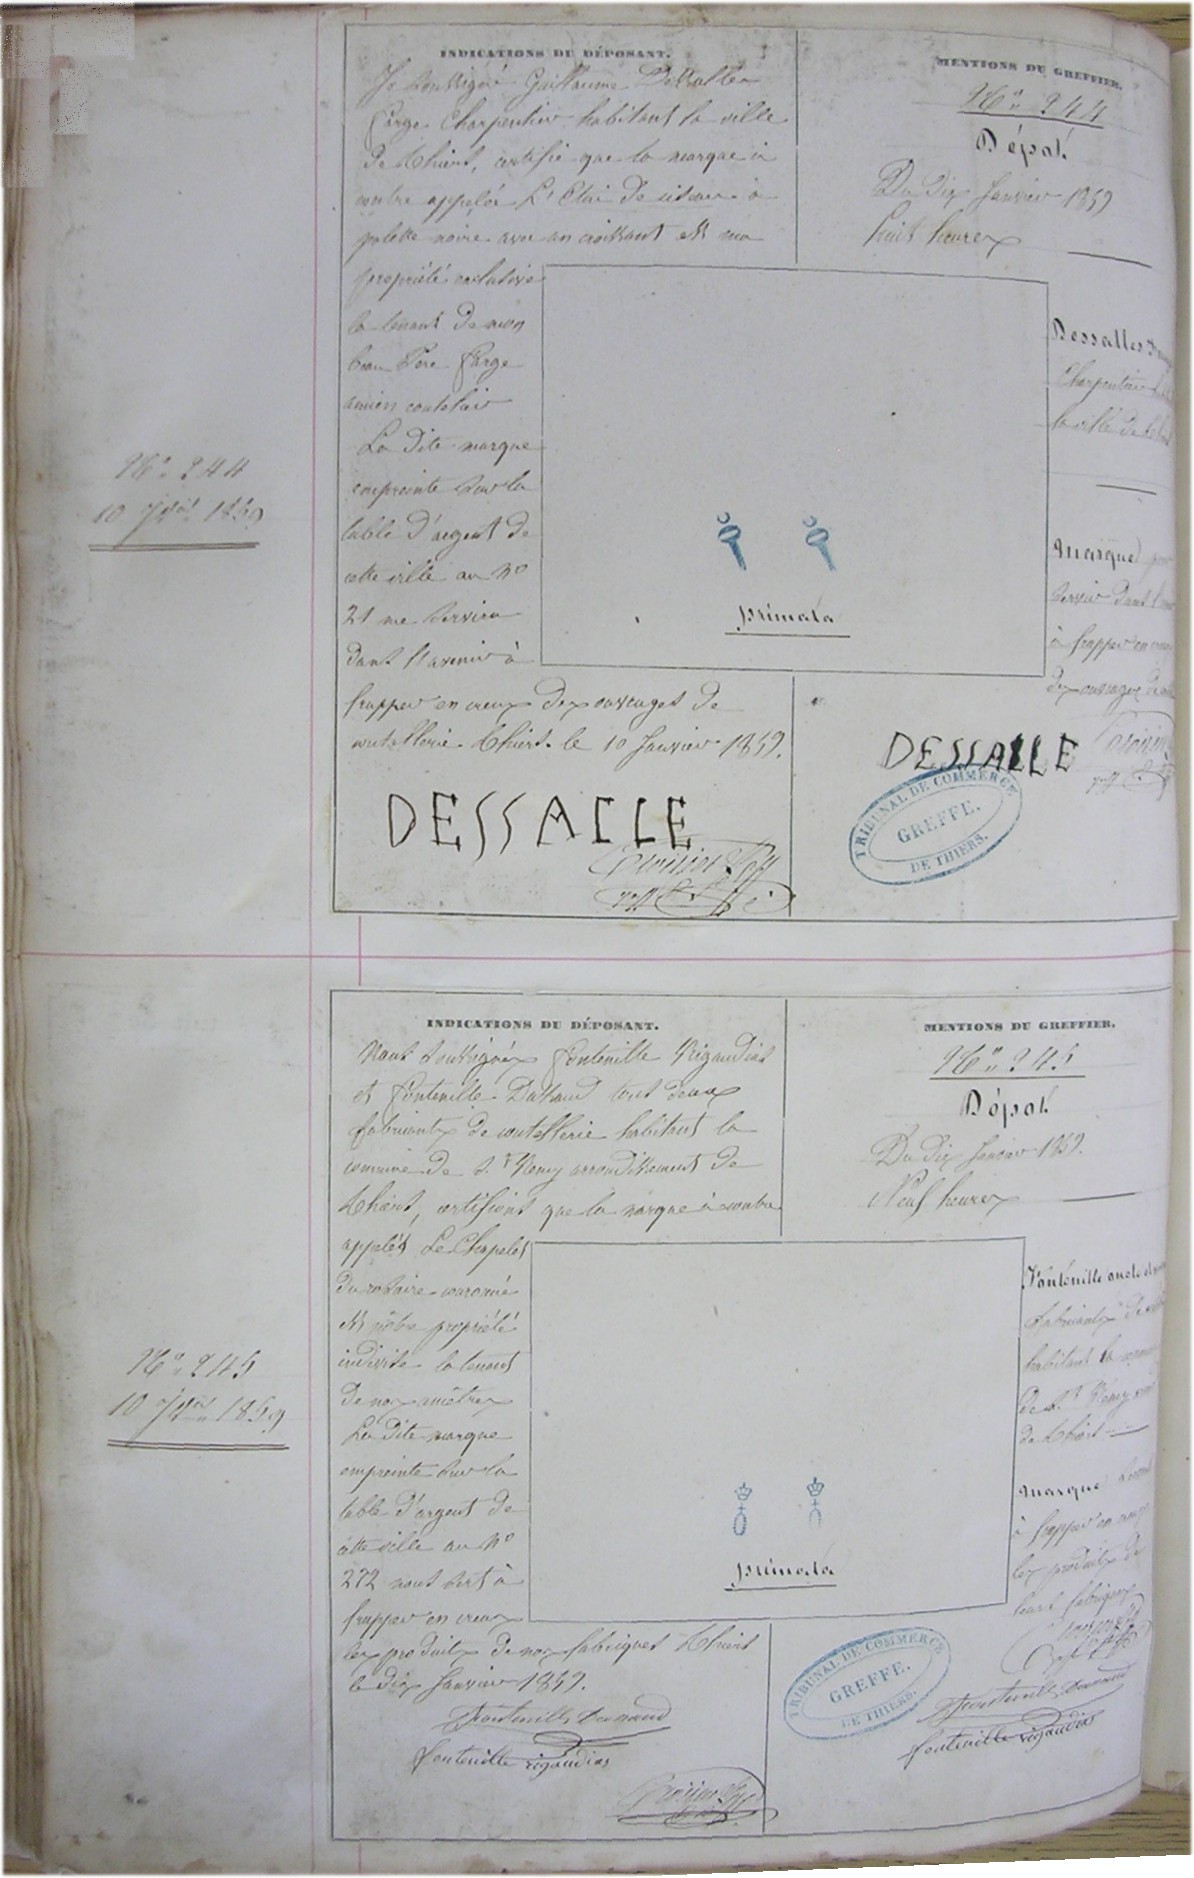 INDICATIONS DU DÉPOSANT.
Je soussigné Guillaume Dessalles
Farge Charpentier habitant la ville
de Thiers, certifie que la marque ci
contre appelée L' Clai de ciseaux à
palette noire avec un croissant est ma
propriété exclusive
la tenant de mon
beau Père Farge
ancien coutelier
La dite marque
empreinte sur la
table d'argent de
cette ville au No
21 me servira
dans l'avenir à
frapper en creux des ouvrages de
coutellerie. Thiers. le 10 Janvier 1859.
DESSALLE
MENTIONS DU GREFFIER.
No. 244
Dépôt
Du Dix Janvier 1859
huit heures
Dessalles
Charpentier
la ville de
Marque pour
servir dans l'
à frapper en creux
des ouvrages de
primata
DESSALLE
TRIBUNAL DE COMMERCE
GREFFE.
DE THIERS.
No. 244
10 Jer 1859
INDICATIONS DU DÉPOSANT.
Nous soussignés Fontenille Rigaudias
et Fontenille Dassaud tous deux
fabricants de coutellerie habitant la
comune de St Remy arrondissement de
Thiers, certifions que la marque ci contre
appelés Le Chapelet
du rosaire couronné
est nôtre propriété
indivise la tenant
de nos ancêtres
La dite marque
empreinte sur la
table d'argent de
cette ville au No
272 nous sert à
frapper en creux
les produits de nos fabriques Thiers
le dix Janvier 1859.
Fontenille
fontenille rigaudias
MENTIONS DU GREFFIER.
No. 245
Dépôt
Du Dix Janvier 1859.
Neuf heures
Fontenille oncle et
fabricants de
habitant la
de St Rémy
de Thiers
Marque
à frapper en creux
les produits de
leurs fabriques
primata
TRIBUNAL DE COMMERCE
GREFFE.
DE THIERS.
Fontenille
fontenille rigaudias
No. 245
10 Jer 1859